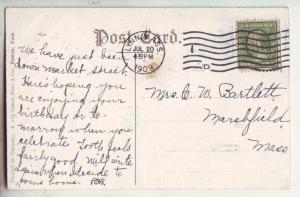 Post Card.
LYNN, MASS
JUL 20
4 30 PM
1909
1
D
We have just been
down market street.
Here's hoping you
are enjoying your
birthday or to-
morrow when you
celebrate. Tooth feels
fairly good. Will write
again when I decide to
come home.
Mrs. C. W. Bartlett,
Marshfield,
Mass.